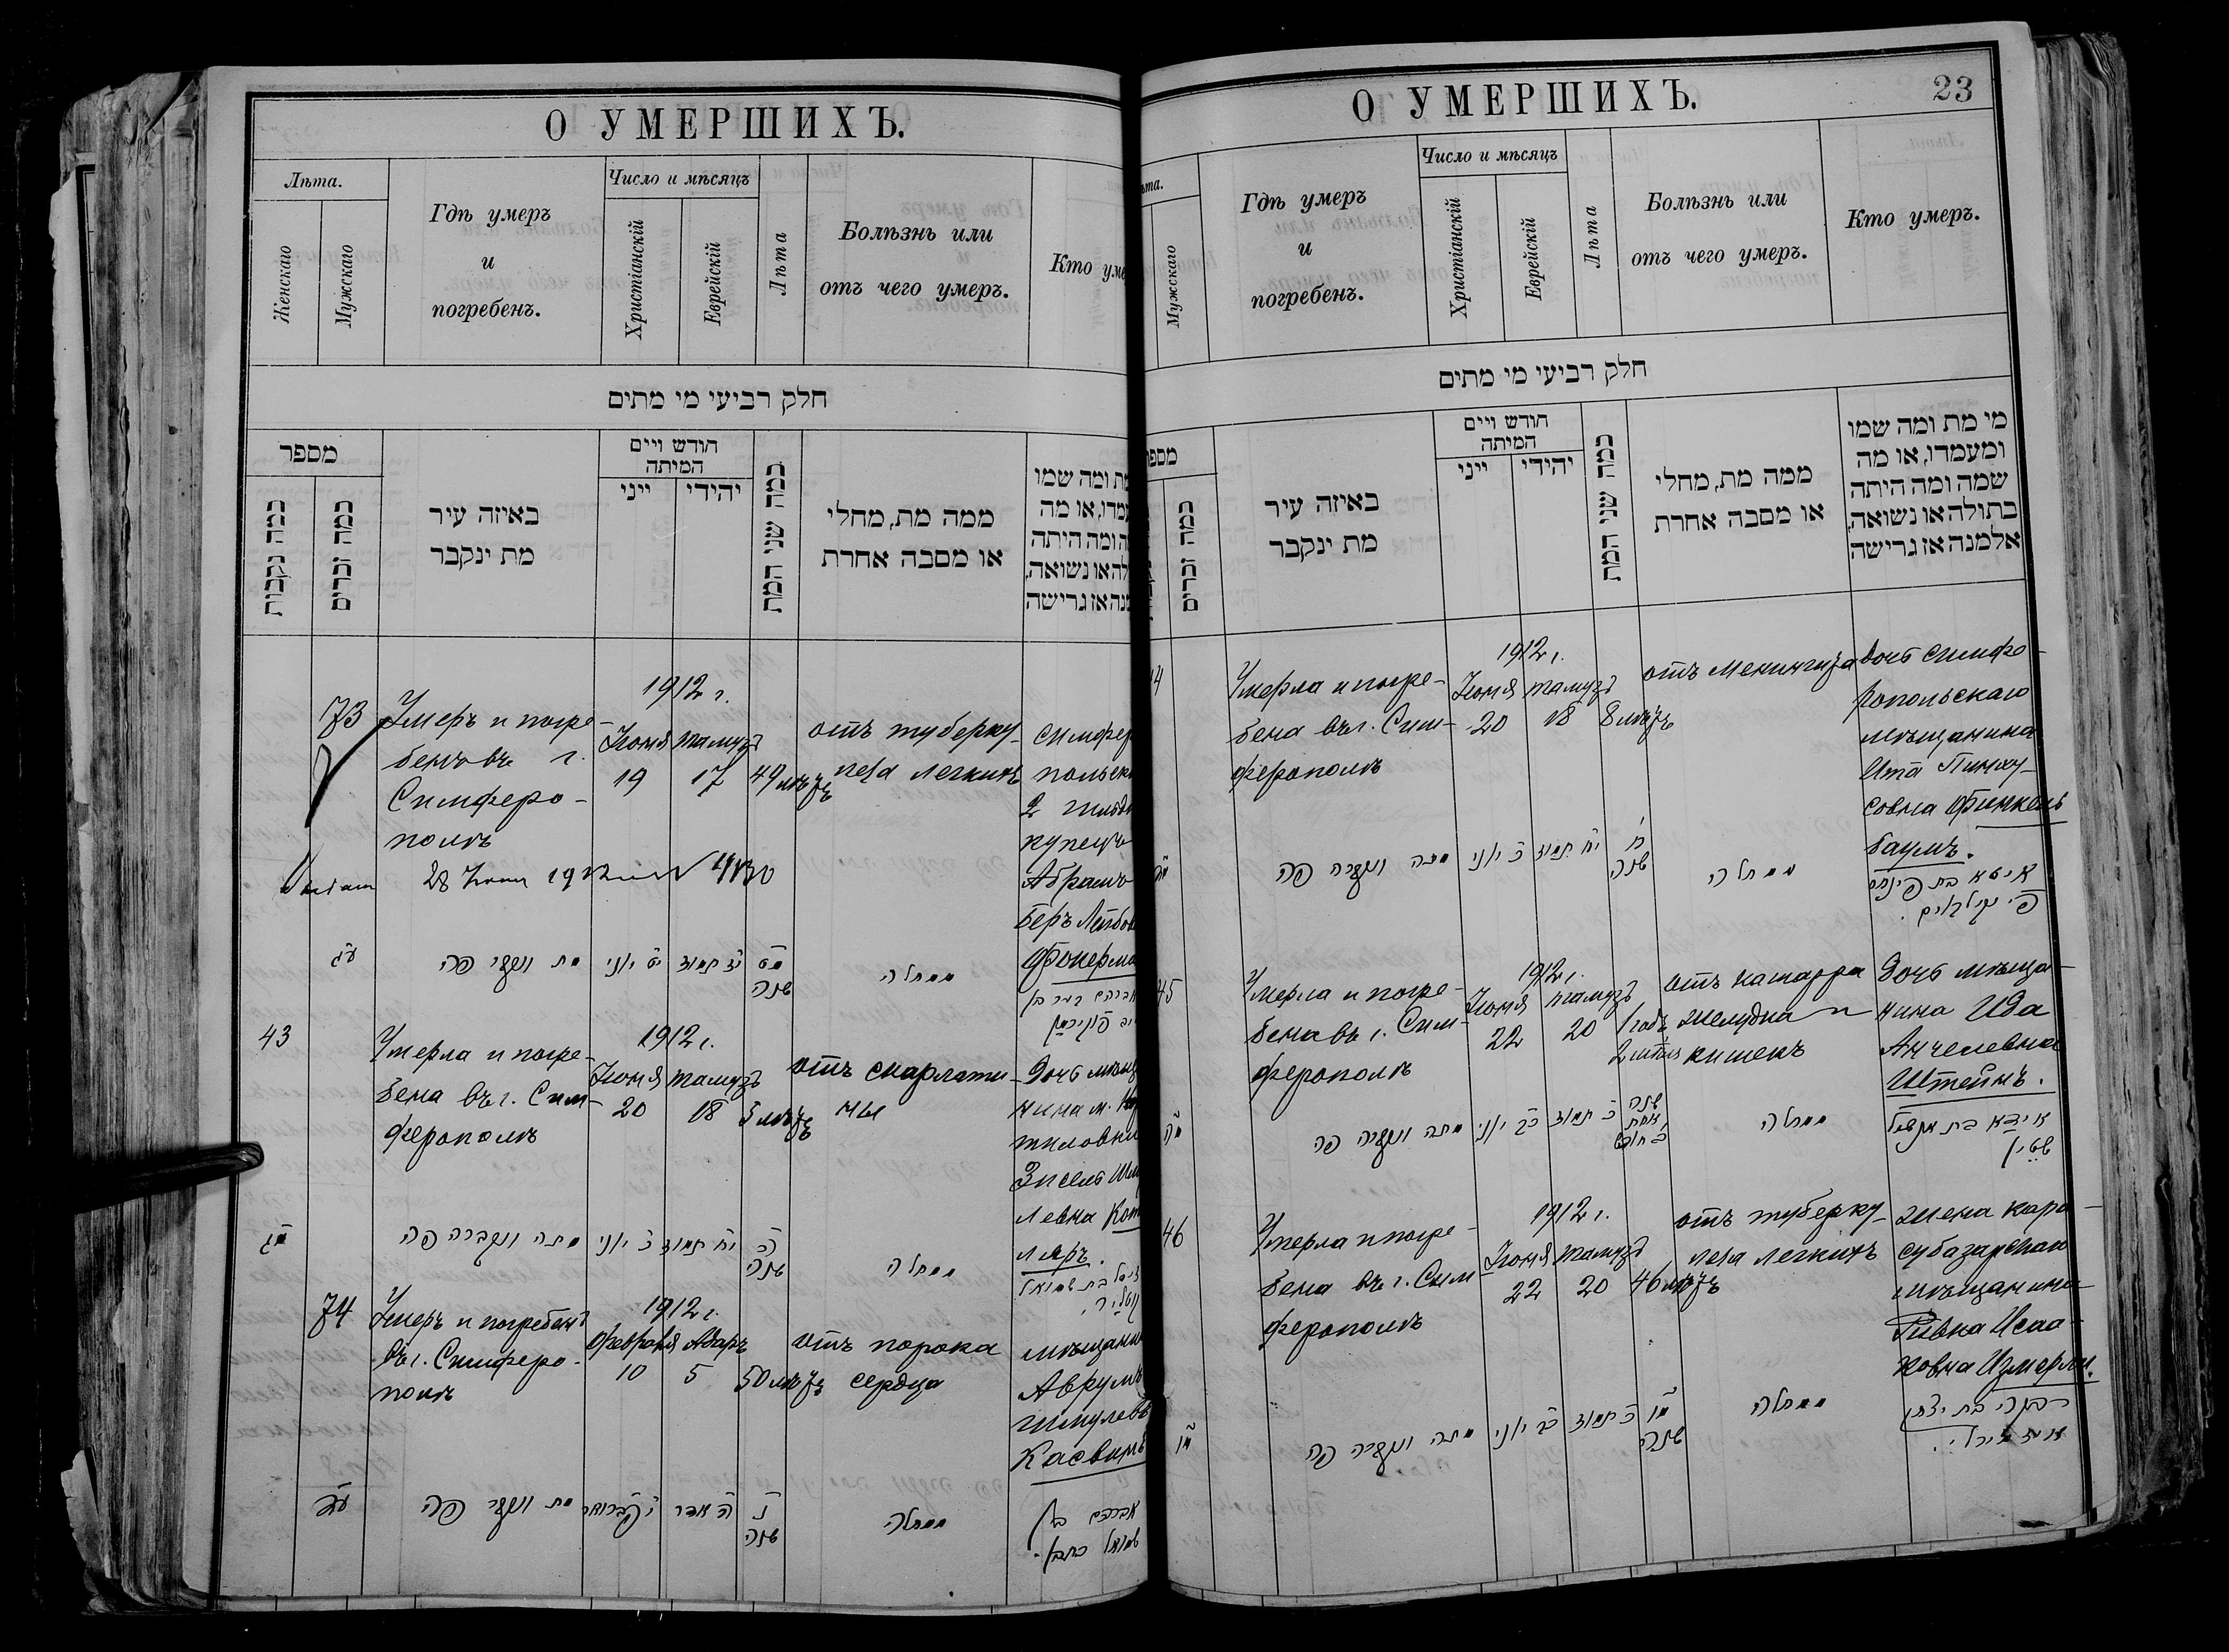 О УМЕРШИХЪ.
Лѣта.
Женскаго
Мужскаго
Гдѣ умеръ
и
погребенъ.
Число и мѣсяцъ
Христіанскій
Еврейскій
Лѣта
Болѣзнь или
отъ чего умеръ.
Кто уме
חלק רביעי מי מתים
מספר
כמה נקבות
כמה זכרים
באיזה עיר
מת ינקבר
חודש ויים
המיתה
ייני
יהודי
כמה שני המת
ממה מת, מחלי
או מסבה אחרת
מת ומה שמו
עמדו, או מה
ה ומה היתה
לה או נשואה,
מנה אז גרישה
73
Умеръ и погре-
бенъ въ г.
Симферо-
полѣ
1912 г.
Іюня Тамузъ
19 17
49 лѣтъ
отъ туберку-
леза легкихъ
Симфер
польск
2 гильд
купецъ
Абрамъ
Беръ Лейбов
Фокерма
28
עג
מת ונקבר פה
יט יוני
יז תמוז
מט
שנה
ממחלה
43
Умерла и погре-
бена въ г. Сим-
ферополѣ
1912 г.
Іюня Тамузъ
20 18
5 лѣтъ
отъ скарлати-
ны
Дочь мѣщ
нина м.
тиловки
Зисель Шм
левна Кот
ляръ.
מג
מתה ונקברה פה
כ יוני
יח תמוז
ה
שנה
ממחלה
74
Умеръ и погребенъ
въ г. Симферо-
полѣ
1912 г.
Февраля Адаръ
10 5
50 лѣтъ
отъ порока
сердца
мѣщани
Аврумъ
Шмулев
Касвинъ
עד
מת ונקבר פה
י פברואר
ה אדר
נ
שנה
ממחלה
אברהם בן
שמואל כסבין.
О УМЕРШИХЪ.
23
ѣта.
Мужскаго
Гдѣ умеръ
и
погребенъ.
Число и мѣсяцъ
Христіанскій
Еврейскій
Лѣта
Болѣзнь или
отъ чего умеръ.
Кто умеръ.
חלק רביעי מי מתים
מספר
כמה זכרים
באיזה עיר
מת ינקבר
חודש ויים
המיתה
ייני
יהידי
כמה שני המת
ממה מת, מחלי
או מסבה אחרת
מי מת ומה שמו
ומעמדו, או מה
שמה ומה היתה
בתולה או נשואה,
אלמנה אז גרישה
44
Умерла и погре-
бена въ г. Сим-
ферополѣ
1912 г.
Іюня Тамузъ
20 18
8 лѣтъ
отъ менингита
Дочь Симфе-
ропольскаго
мѣщанина
Ита Пинху-
совна Финкель-
баумъ.
מד
מתה ונקברה פה
כ יוני
יח תמוז
ח
שנה
ממחלה
איטא בת פינחס
פינקילבוים.
45
Умерла и погре-
бена въ г. Сим-
ферополѣ
1912 г.
Іюня Тамузъ
22 20
1 годъ
2 мѣс.
отъ катарра
желудка и
кишекъ
Дочь мѣща-
нина Ида
Анчелевна
Штейнъ.
מה
מתה ונקברה פה
כב יוני
כ תמוז
שנה
אחת
ב חודש
ממחלה
אידא בת אנשיל
שטיין
46
Умерла и погре-
бена въ г. Сим-
ферополѣ
1912 г.
Іюня Тамузъ
22 20
46 лѣтъ
отъ туберку-
леза легкихъ
жена Кара-
субазарскаго
мѣщанина
Ривка Исаа-
ковна Измерли.
מו
מתה ונקברה פה
כב יוני
כ תמוז
מו
שנה
ממחלה
רבקה בת יצחק
איזמירלי.